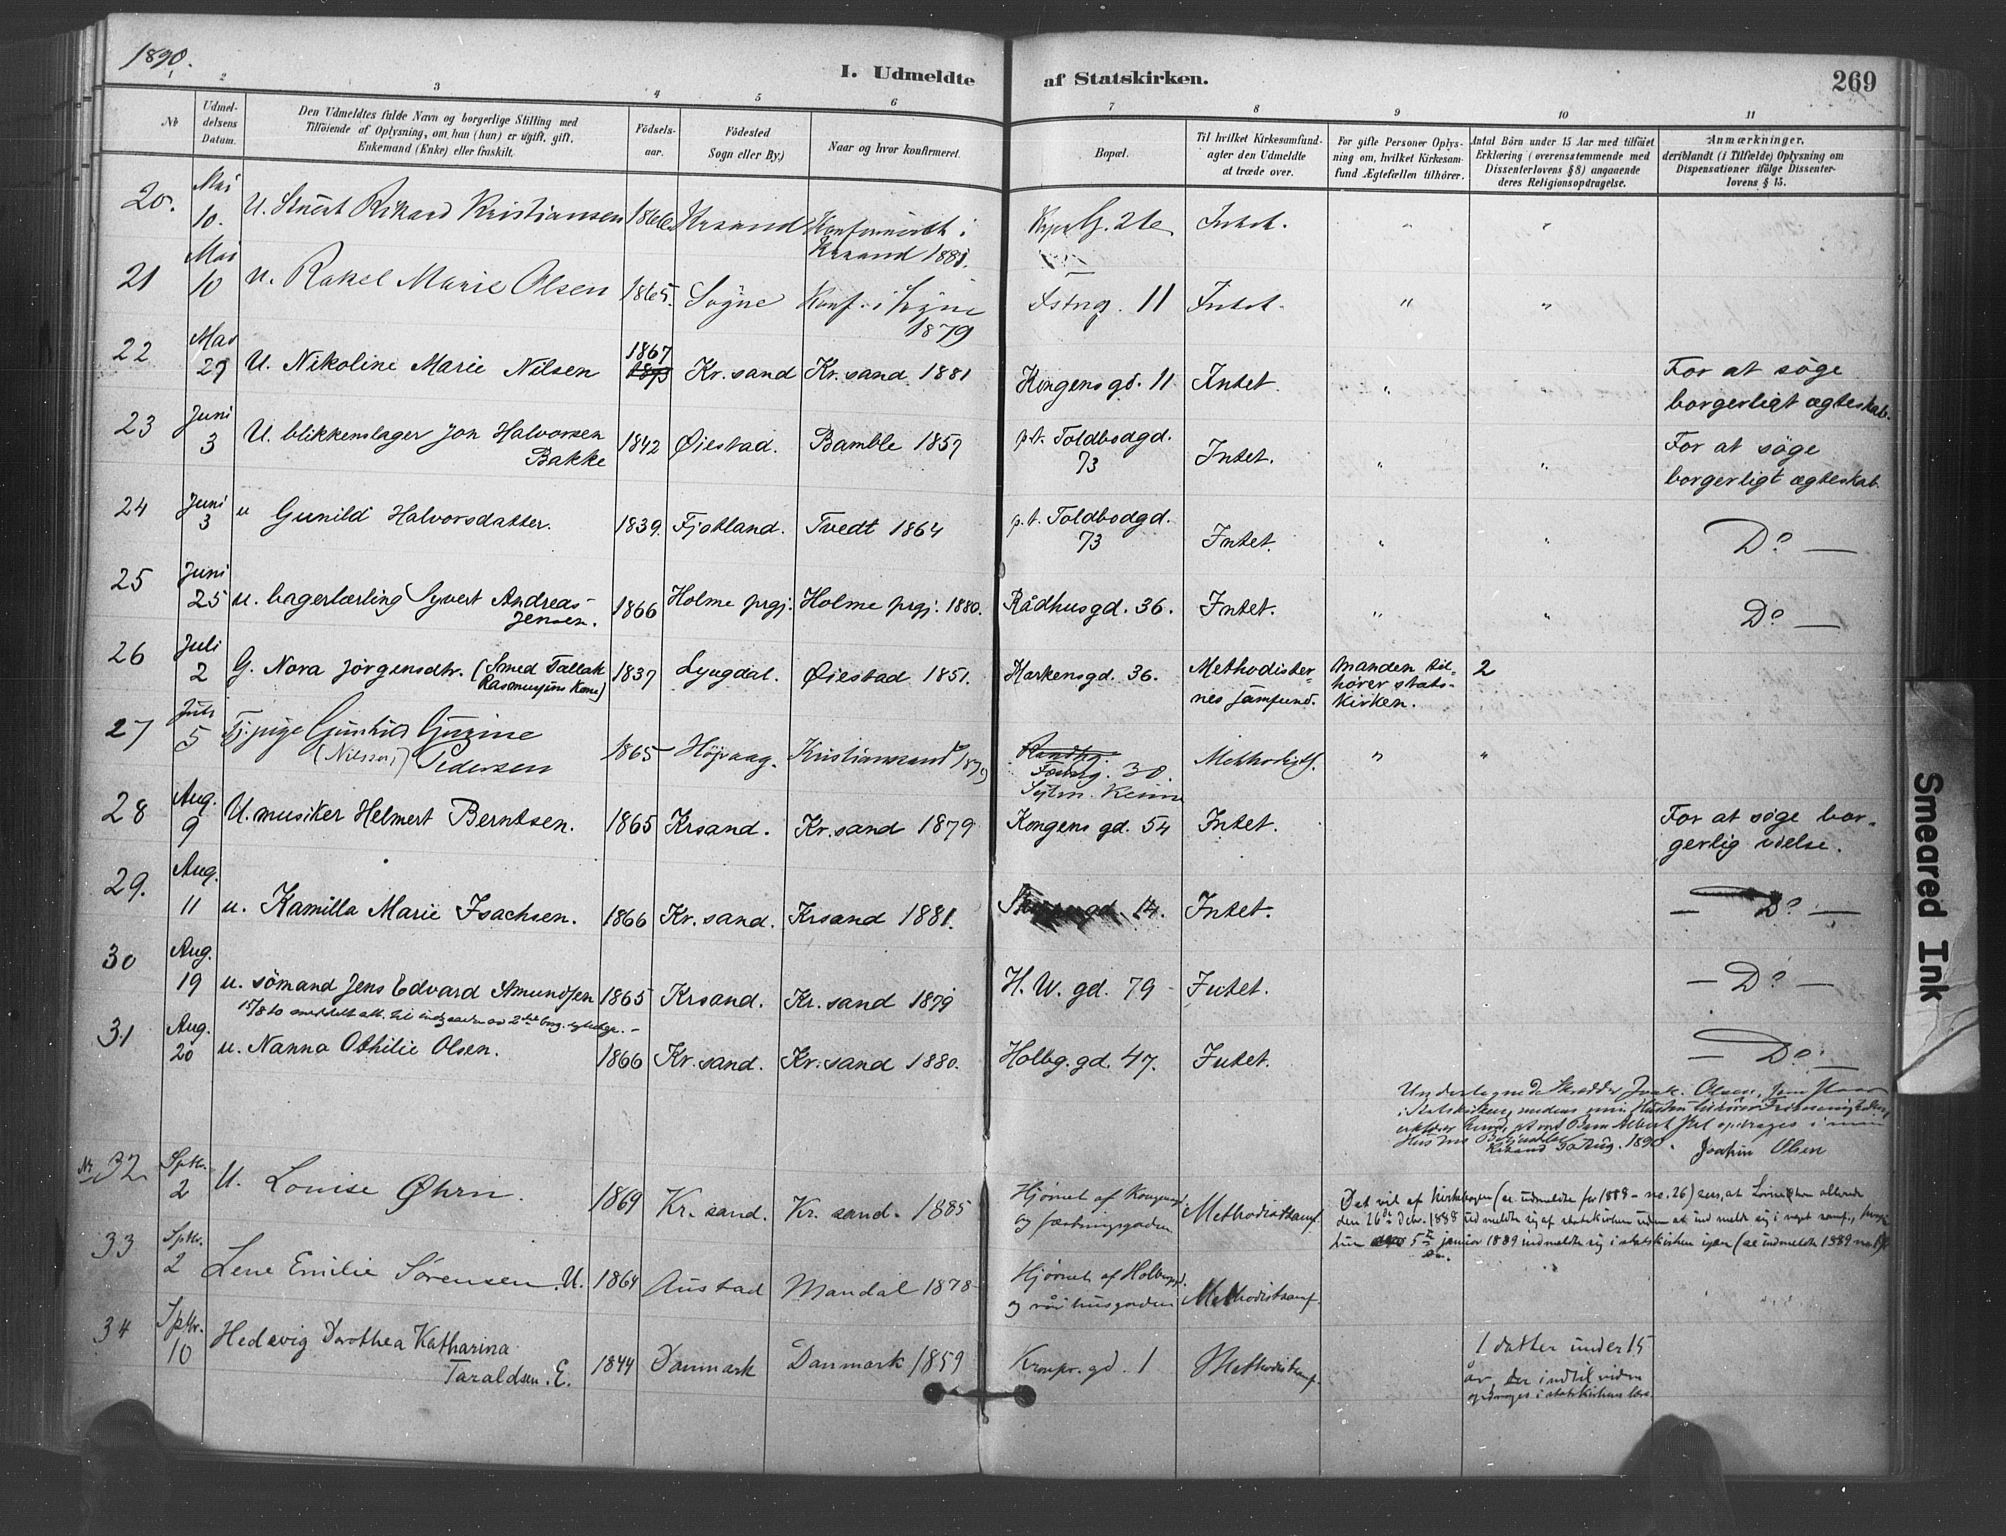 1890.
I. Udmeldte af Statskirken.
269
1 2 3 4 5 6 7 8 9 10 11
No
Udmel-
delsens
Datum.
Den Udmeldtes fulde Navn og borgerlige Stilling med
Tilföiende af Oplysning, om han (hun) er ugift, gift,
Enkemand (Enke) eller fraskilt.
Födsels-
aar.
Födested
Sogn eller By.)
Naar og hvor konfirmeret.
Bopæl.
Til hvilket Kirkesamfund-
agter den Udmeldte
at træde over.
For gifte Personer Oplys-
ning om, hvilket Kirkesam-
fund Ægtefællen tilhörer.
Antal Börn under 15 Aar med tilföiet
Erklæring (overensstemmende med
Dissenterlovens § 8) angaaende
deres Religionsopdragelse.
Anmærkninger.
deriblandt (i Tilfælde) Oplysning om
Dispensationer ifölge Dissenter-
lovens § 15.
20. Mai 10. U. Rikard Kristiansen 1866 Krsand Konfirmeret i Krsand 1881. 26 Intet. " "
21 Mai 10 U. Rakel Marie Olsen 1865. Søgne Konf. i Søgne 1879 11 Intet. " "
22 Mai 29 U. Nikoline Marie Nilsen 1867 Kr.sand Kr.sand 1881 Kongens gd. 11 Intet. " For at søge
borgerligt ægteskab.
23 Juni 3 U. blikkenslager Jon Halvorsen
Bakke 1842 Øiestad. Bamble 1857 p.t. Toldbodgd.
73 Intet. " " For at søge
borgerligt ægteskab.
24 Juni 3 u Gunild Halvorsdatter. 1839. Fjotland. Tvedt 1864 p.t. Toldbodgd.
73 Intet. " " Do —
25 Juni 25 u. bagerlærling Syvert Andreas
Jensen. 1866 Holme prgj. Holme prgj. 1880. Rådhusgd. 36. Intet. " " Do —
26 Juli 2 G. Nora Jørgensdtr. (Smed Tallak
Rasmussens Kone) 1837 Lyngdal. Øiestad 1851. Markensgd. 36. Methodister-
nes samfund. Manden til-
hører stats-
kirken. 2
27 Juli 5 Tj.pige Gunhild Guzine
(Nilssen,) Pedersen 1865 Høivaag. Kristianssand 1879 30. Methodistf. " "
28 Aug. 9 U. musiker Helmert Berntsen. 1865 Krsand. Kr.sand 1879 Kongens gd. 54 Intet. For at søge bor-
gerlig vielse.
29. Aug. 11 u. Kamilla Marie Isachsen. 1866 Kr.sand. Krsand 1881. gd. 14. Intet. — Do —
30 Aug. 19 u. sømand Jens Edvard Amundsen 1865 Krsand. Kr.sand 1879 H. W. gd. 79 Intet. — Do —
31 Aug. 20 u. Nanna Othilie Olsen. 1866 Kr.sand. Kr.sand 1880. Holbg.gd. 47. Intet. — Do. —
Undertegnede Skrædder Joak. Olsen, som staar
i Statskirken, medens min Hustru tilhører Frimenigheden,
erklærer herved, at vort Barn Albert opdrages i min
Hustrus
Krsand Aug. 1890. Joakim Olsen
Nr 32 Sptbr. 2 U. Louise Øhrn. 1869 Kr.sand. Kr. sand. 1885 Hjørnet af Kongensgd.
og fæstningsgaden Methodistsamf. Det vil af kirkebogen (se udmeldte for 1888 - no. 26) sees, at Lovise Øhrn allerede
den 26de Debr. 1888 udmeldte sig af statskirken uden at ind melde sig i noget samf.,
hun 5te januar 1889 indmeldte sig i statskirken igjen (se indmeldte 1889 no.
33 Sptbr. 2 Lene Emilie Sørensen. U. 1864 Austad Mandal 1878 Hjørnet af Holbergsgd.
og rådhusgaden Methodistsamf.
34 Sptbr. 10 Hedevig Dorothea Katharina
Taraldsen. E. 1844 Danmark Danmark 1859 Kronpr.gd. 1 Methodistsamf. 1 datter under 15
år, der indtil viden
opdrages i statskirkens lære.
Smeared Ink